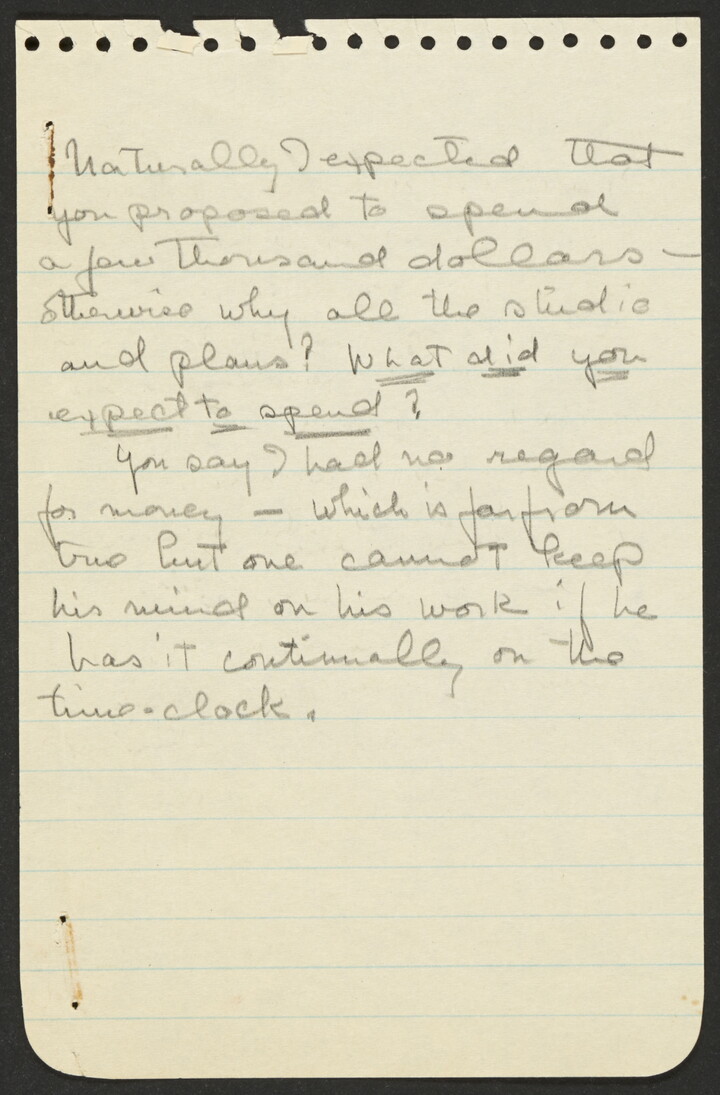 Naturally I expected that
you proposed to spend
a few Thousand dollars —
otherwise why all the studio
and plans? What did you
expect to spend?
You say I had no regard
for money — which is far from
true but one cannot keep
his mind on his work if he
has it continually on the
time-clock.